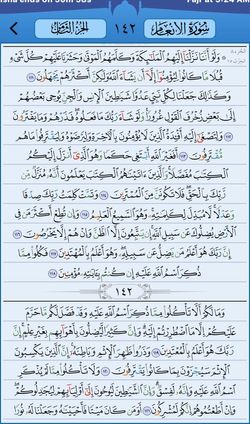 Fajr at 3:24 AM
سورة الأنعام ١٤٢ الجزء الثامن
وَلَوْ أَنَّنَا نَزَّلْنَا إِلَيْهِمُ الْمَلَٰئِكَةَ وَكَلَّمَهُمُ الْمَوْتَىٰ وَحَشَرْنَا عَلَيْهِمْ كُلَّ شَيْءٍ
قُبُلًا مَّا كَانُوا لِيُؤْمِنُوا إِلَّا أَن يَشَاءَ اللَّهُ وَلَٰكِنَّ أَكْثَرَهُمْ يَجْهَلُونَ ١١١
وَكَذَٰلِكَ جَعَلْنَا لِكُلِّ نَبِيٍّ عَدُوًّا شَيَٰطِينَ الْإِنسِ وَالْجِنِّ يُوحِي بَعْضُهُمْ
إِلَىٰ بَعْضٍ زُخْرُفَ الْقَوْلِ غُرُورًا وَلَوْ شَاءَ رَبُّكَ مَا فَعَلُوهُ فَذَرْهُمْ وَمَا يَفْتَرُونَ
١١٢ وَلِتَصْغَىٰ إِلَيْهِ أَفْـِٔدَةُ الَّذِينَ لَا يُؤْمِنُونَ بِالْـَٔاخِرَةِ وَلِيَرْضَوْهُ وَلِيَقْتَرِفُوا مَا هُم
مُّقْتَرِفُونَ ١١٣ أَفَغَيْرَ اللَّهِ أَبْتَغِي حَكَمًا وَهُوَ الَّذِي أَنزَلَ إِلَيْكُمُ
الْكِتَٰبَ مُفَصَّلًا وَالَّذِينَ ءَاتَيْنَٰهُمُ الْكِتَٰبَ يَعْلَمُونَ أَنَّهُ مُنَزَّلٌ مِّن
رَّبِّكَ بِالْحَقِّ فَلَا تَكُونَنَّ مِنَ الْمُمْتَرِينَ ١١٤ وَتَمَّتْ كَلِمَتُ رَبِّكَ صِدْقًا
وَعَدْلًا لَّا مُبَدِّلَ لِكَلِمَٰتِهِ وَهُوَ السَّمِيعُ الْعَلِيمُ ١١٥ وَإِن تُطِعْ أَكْثَرَ مَن فِي
الْأَرْضِ يُضِلُّوكَ عَن سَبِيلِ اللَّهِ إِن يَتَّبِعُونَ إِلَّا الظَّنَّ وَإِنْ هُمْ إِلَّا يَخْرُصُونَ ١١٦
إِنَّ رَبَّكَ هُوَ أَعْلَمُ مَن يَضِلُّ عَن سَبِيلِهِ وَهُوَ أَعْلَمُ بِالْمُهْتَدِينَ ١١٧ فَكُلُوا مِمَّا
ذُكِرَ اسْمُ اللَّهِ عَلَيْهِ إِن كُنتُم بِـَٔايَٰتِهِ مُؤْمِنِينَ ١١٨
١٤٢
وَمَا لَكُمْ أَلَّا تَأْكُلُوا مِمَّا ذُكِرَ اسْمُ اللَّهِ عَلَيْهِ وَقَدْ فَصَّلَ لَكُم مَّا حَرَّمَ
عَلَيْكُمْ إِلَّا مَا اضْطُرِرْتُمْ إِلَيْهِ وَإِنَّ كَثِيرًا لَّيُضِلُّونَ بِأَهْوَائِهِم بِغَيْرِ عِلْمٍ إِنَّ
رَبَّكَ هُوَ أَعْلَمُ بِالْمُعْتَدِينَ ١١٩ وَذَرُوا ظَٰهِرَ الْإِثْمِ وَبَاطِنَهُ إِنَّ الَّذِينَ يَكْسِبُونَ
الْإِثْمَ سَيُجْزَوْنَ بِمَا كَانُوا يَقْتَرِفُونَ ١٢٠ وَلَا تَأْكُلُوا مِمَّا لَمْ يُذْكَرِ
اسْمُ اللَّهِ عَلَيْهِ وَإِنَّهُ لَفِسْقٌ وَإِنَّ الشَّيَٰطِينَ لَيُوحُونَ إِلَىٰ أَوْلِيَائِهِمْ لِيُجَٰدِلُوكُمْ
وَإِنْ أَطَعْتُمُوهُمْ إِنَّكُمْ لَمُشْرِكُونَ ١٢١ أَوَمَن كَانَ مَيْتًا فَأَحْيَيْنَٰهُ وَجَعَلْنَا لَهُ نُورًا